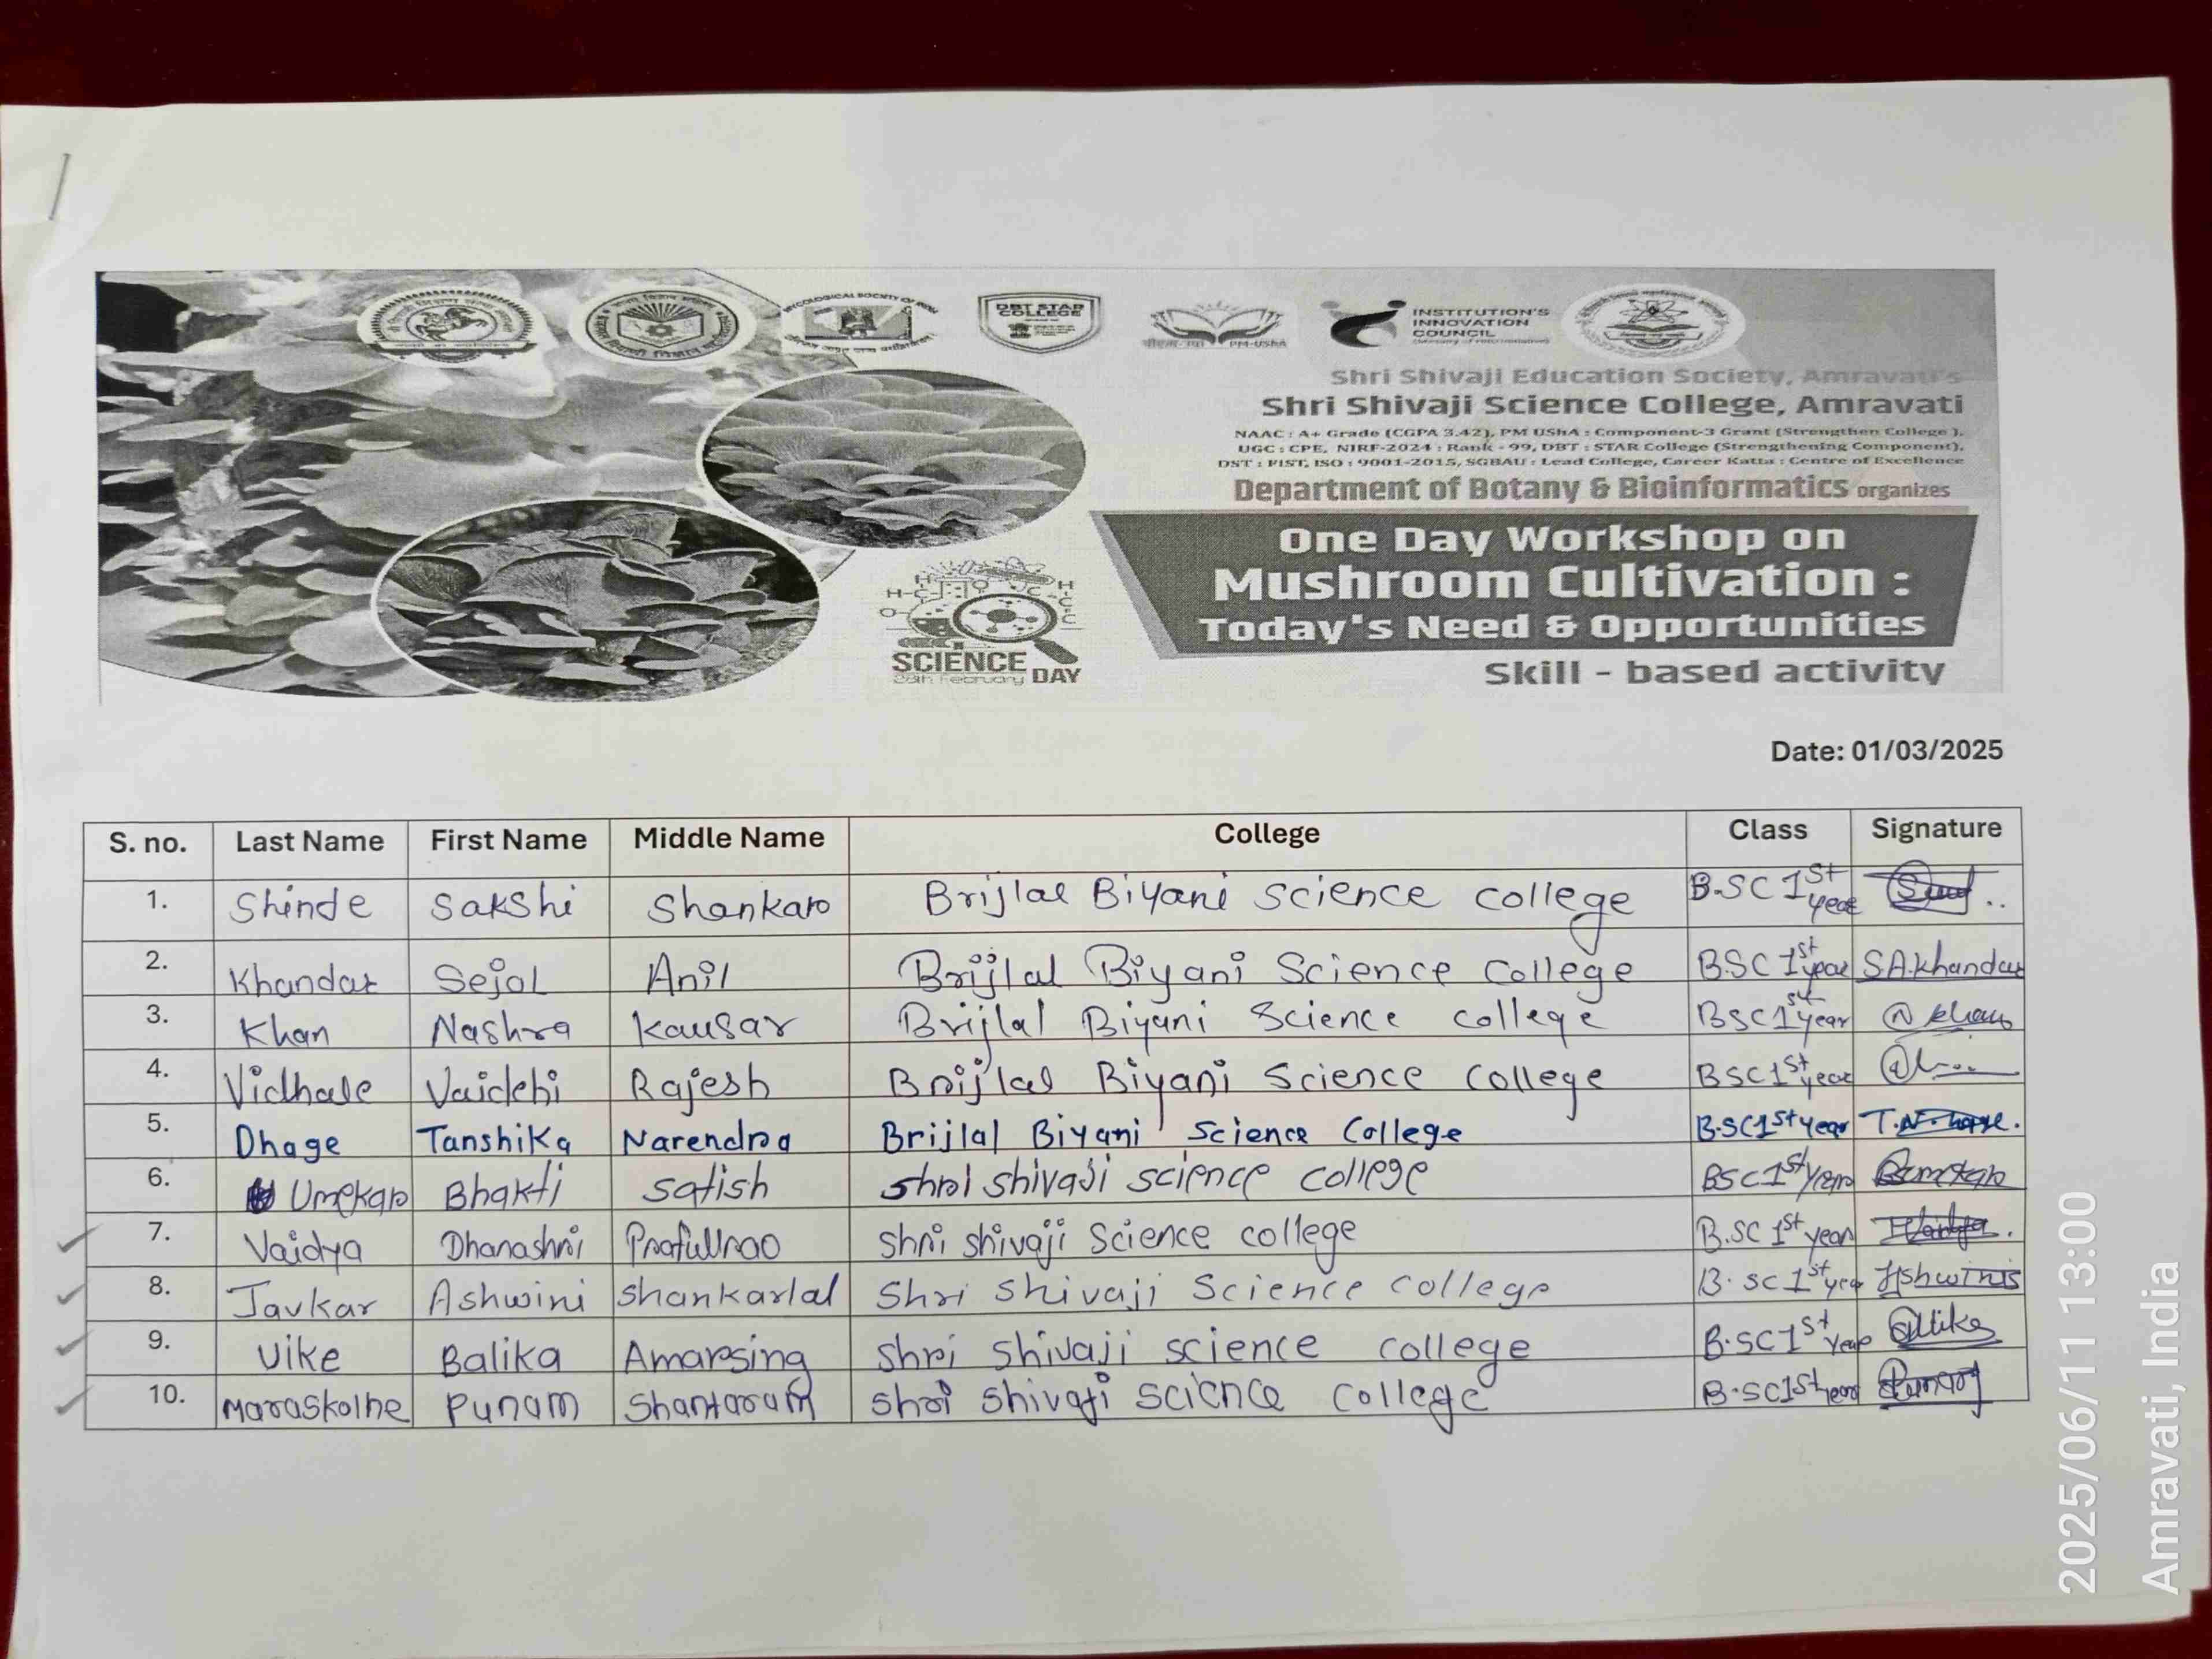 DBT STAR
COLLEGE
PM-USHA
INSTITUTION'S
INNOVATION
COUNCIL
Shri Shivaji Education Society, Amravati's
Shri Shivaji Science College, Amravati
NAAC : A+ Grade (CGPA 3.42), PM UShA : Component-3 Grant (Strengthen College ),
UGC : CPE, NIRF-2024 : Rank - 99, DBT : STAR College (Strengthening Component),
DST : FIST, ISO : 9001-2015, SGBAU : Lead College, Career Katta : Centre of Excellence
Department of Botany & Bioinformatics organizes
One Day Workshop on
Mushroom Cultivation :
Today's Need & Opportunities
Skill - based activity
SCIENCE
28th February DAY
Date: 01/03/2025
S. no. Last Name First Name Middle Name College Class Signature
1. Shinde Sakshi Shankar Brijlal Biyani Science College B.SC 1st year
2. Khandar Sejal Anil Brijlal Biyani Science College B.SC 1st year S.A.Khandar
3. Khan Nashra Kausar Brijlal Biyani Science college BSC 1st year
4. Vidhale Vaidehi Rajesh Brijlal Biyani Science College BSC 1st year
5. Dhage Tanshika Narendra Brijlal Biyani Science College B.SC 1st year
6. Umekar Bhakti Satish Shri Shivaji science college BSC 1st Year
7. Vaidya Dhanashri Prafullrao Shri Shivaji Science college B.SC 1st year
8. Javkar Ashwini Shankarlal Shri Shivaji Science College B.SC 1st year Ashwinis
9. Uike Balika Amarsing Shri Shivaji science college B.SC 1st Year
10. Maraskolhe Punam Shantaram Shri Shivaji Science College B.SC 1st year
2025/06/11 13:00
Amravati, India